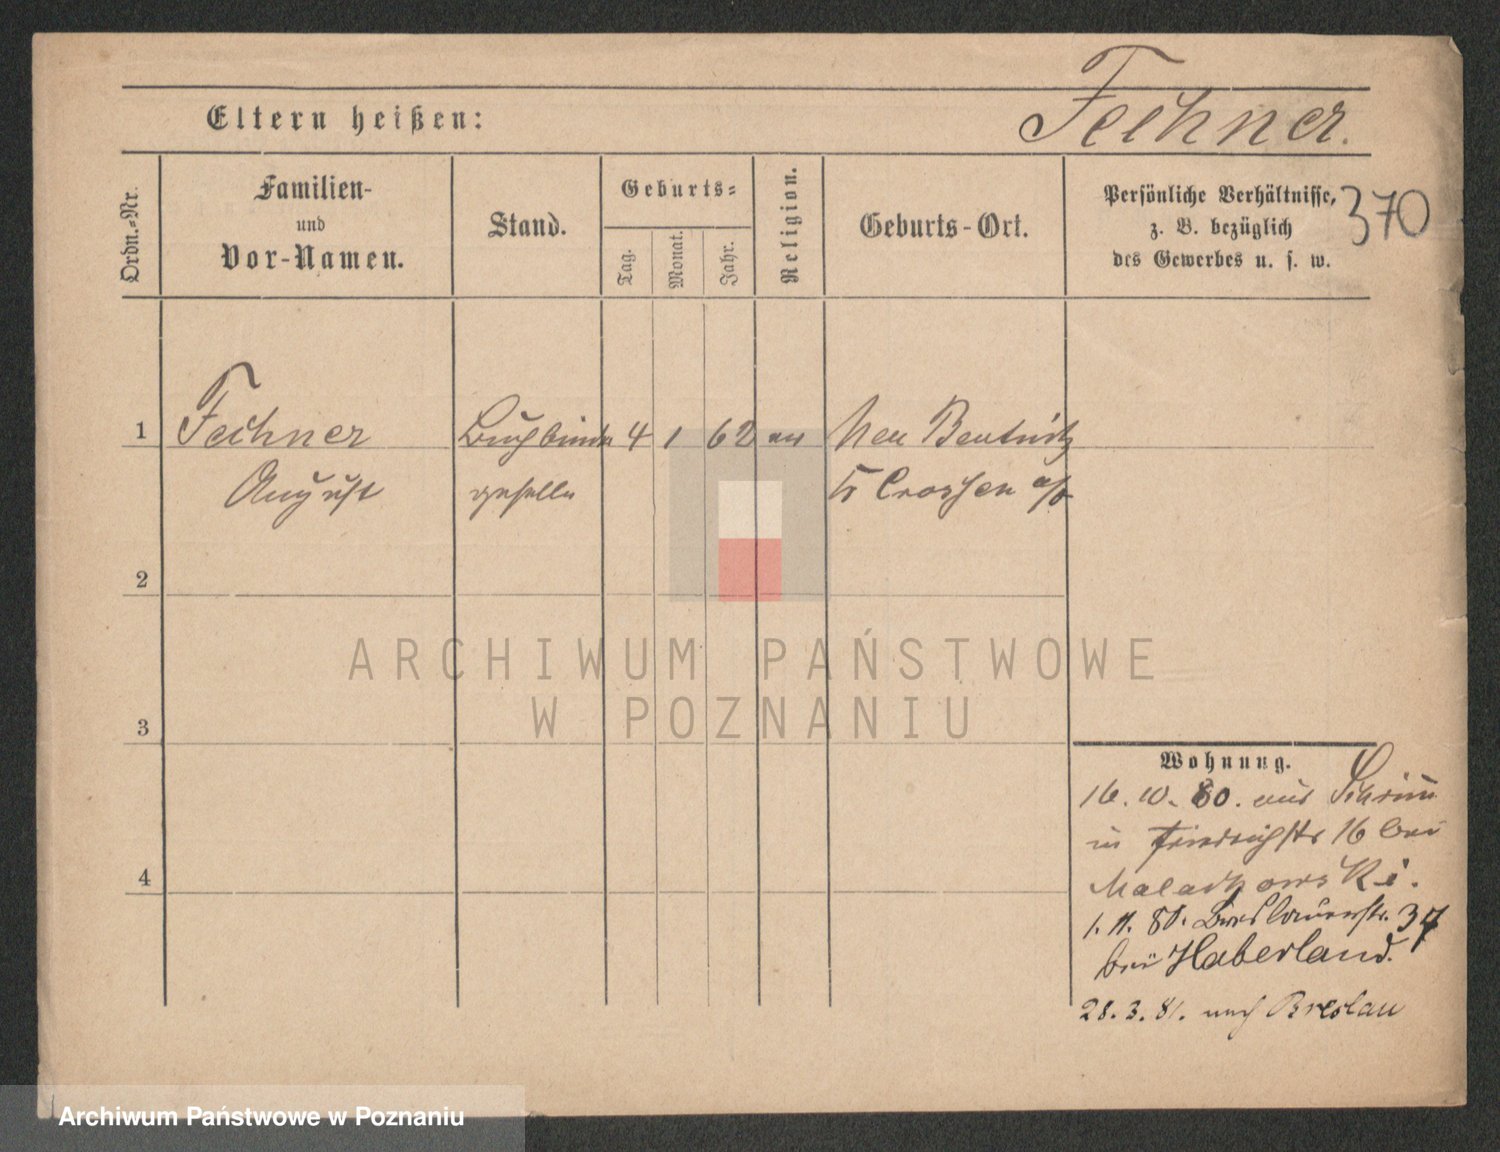 Eltern heißen:
Fechner.
Ordn.-Nr.
Familien-
und
Vor-Namen.
Stand.
Geburts-
Tag.
Monat.
Jahr.
Religion.
Geburts-Ort.
Persönliche Verhältnisse,
z. B. bezüglich
des Gewerbes u. s. w.
370
1 Fechner Buchbinder 4 1 62 ev Neu Beutnitz
August geselle Kr Crossen a/o
2
3
4
ARCHIWUM PAŃSTWOWE
W POZNANIU
Wohnung.
16. 10. 80. aus Schrimm
in Friedrichstr 16 bei
1. 11. 80. Breslauerstr. 37
bei Haberland.
28. 3. 81. nach Breslau
Archiwum Państwowe w Poznaniu